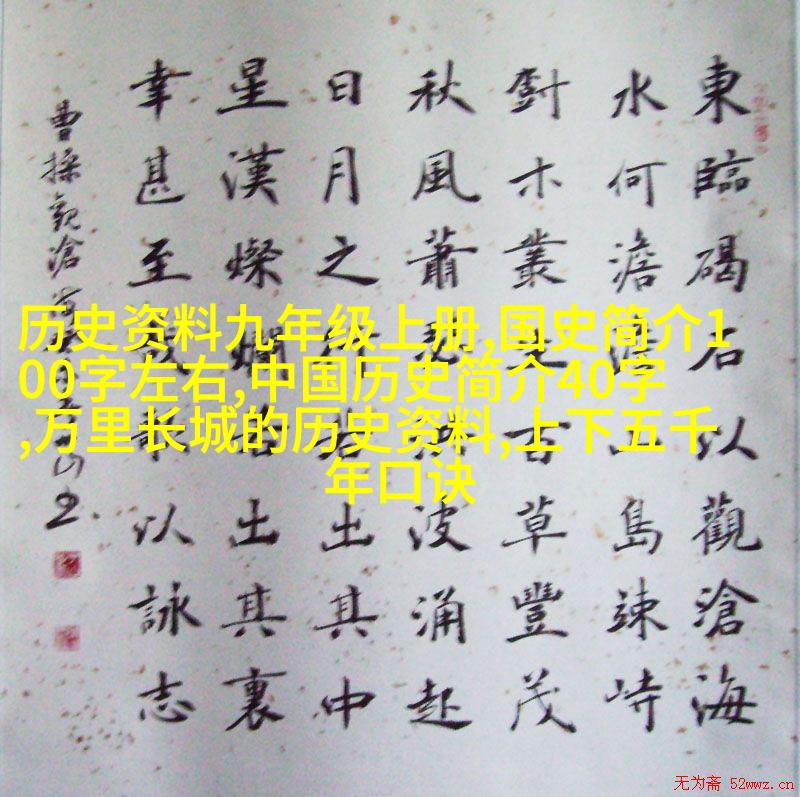 東臨碣石以觀滄海
水何澹澹山島竦峙
木叢生百草豐茂
秋風蕭瑟洪波涌起
日月之行若出其中
星漢燦爛若出其裏
幸甚至哉歌以詠志
曹操觀滄
历史资料九年级上册,国史简介1
00字左右,中国历史简介40字
,万里长城的历史资料,上下五千
年口诀
无为斋 52wwz.cn